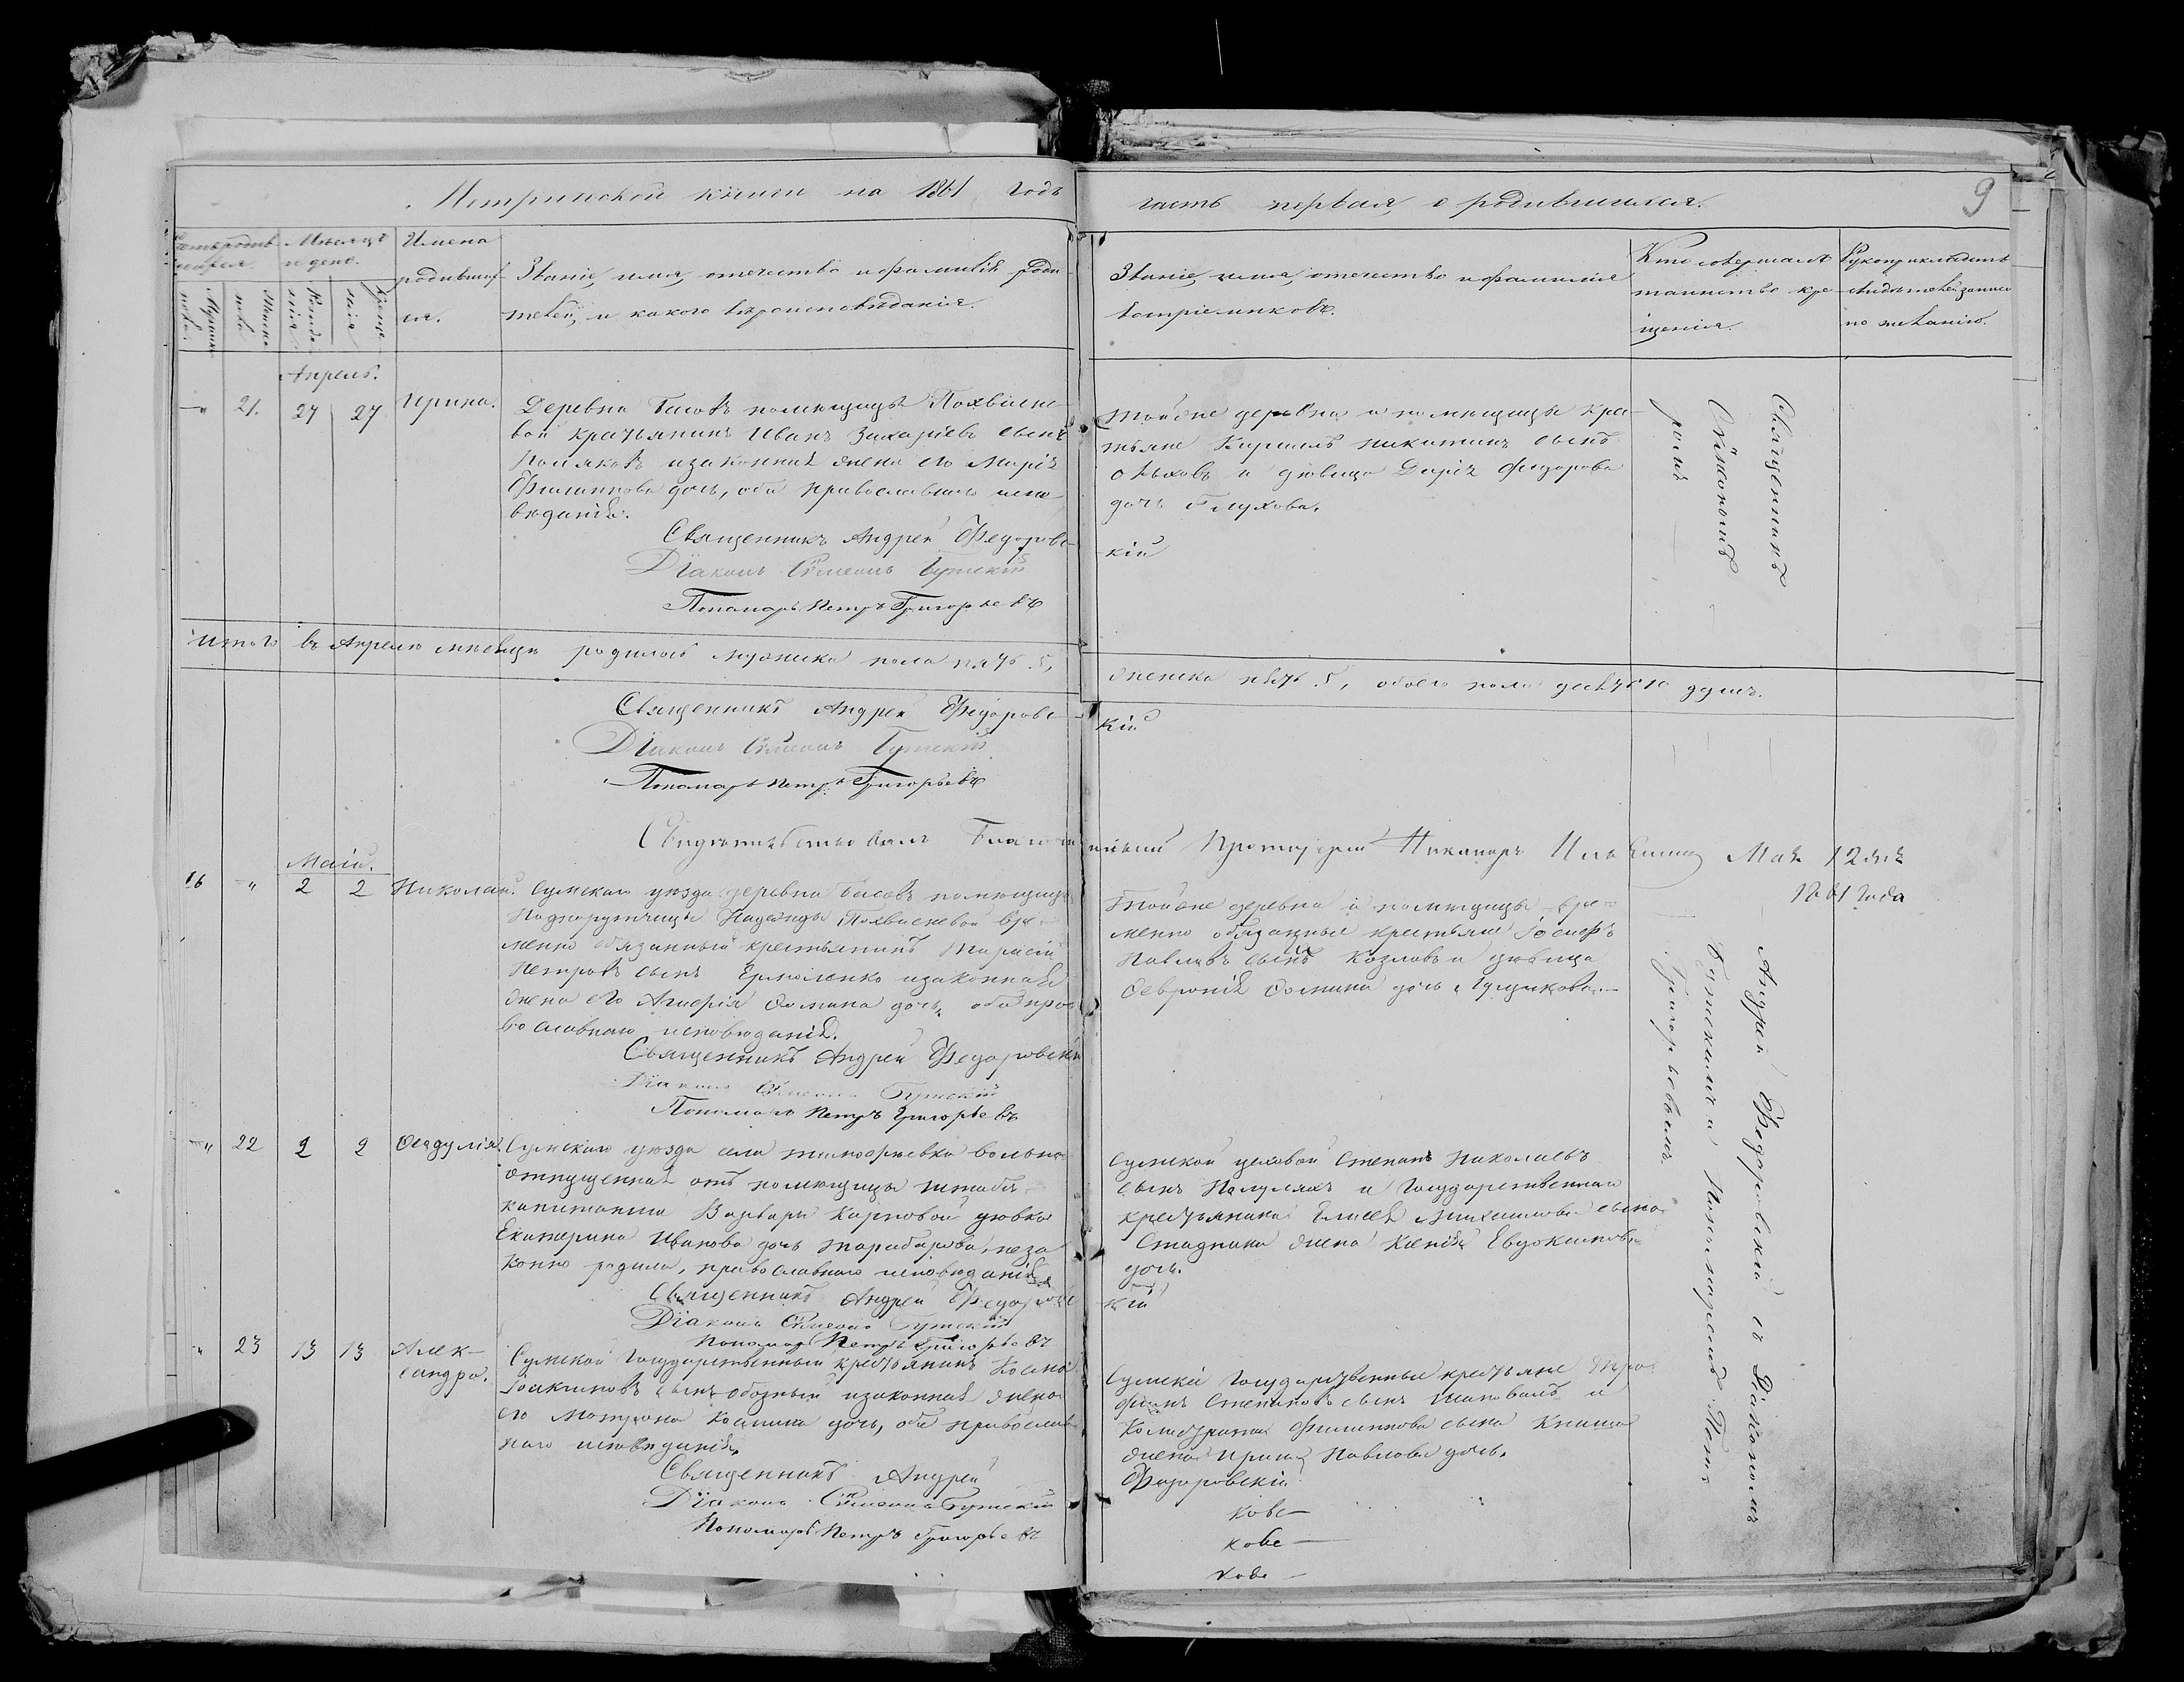 Метрической книги на 1861 годъ
часть первая, о родившихся.
9
Счетъ родив
шихся.
Мѣсяцъ
и день.
Имена
родивших
ся.
Званіе, имя, отечество и фамилія роди-
телей, и какого вѣроисповѣданія.
Званіе, имя, отечество и фамилія
воспріемниковъ.
Кто совершалъ
таинство кре-
щенія.
Рукоприкладство
свидѣтелей записи
по желанію.
Мужеска
пола.
Женска
пола.
Рожде
нія.
Креще
нія.
Апрель.
21. 27 27 Ирина.
Деревни Басовъ помѣщицы Похвисне-
вой крестьянинъ Иванъ Захаріевъ сынъ
Поляковъ и законная жена его Марія
Филиппова дочь, оба православнаго испо-
вѣданія.
Священникъ Андрей Федоровс-
кій
Діаконъ Сѵмеонъ Бутскій
Пономарь Петръ Григорьевъ
Тойже деревни и помѣщицы кре-
стьяне Кириллъ Никитинъ сынъ
и дѣвица Дарія Федорова
дочь Глухова.
Священникъ
Итого въ Апрелѣ мѣсяцѣ родилось мужеска пола пять 5,
женска пять 5, обоего пола десять 10 душъ.
Священникъ Андрей Федоровс-
кій
Діаконъ Сѵмеонъ Бутскій
Пономарь Петръ Григорьевъ
Свидѣтельствовалъ Благочинный Протоіерей Никаноръ Мая 12 дня
1861 года
Маій.
16 " 2 2 Николай.
Сумскаго уѣзда деревни Басовъ помѣщицы
Подпоручицы Надежды Похвисневой вре-
менно обязанный крестьянинъ Тарасій
Петровъ сынъ Ермоленко и законная
жена его Агафія Фомина дочь, оба пра-
вославнаго исповѣданія.
Священникъ Андрей Федоровскій
Діаконъ Сѵмеонъ Бутскій
Пономарь Петръ Григорьевъ
Тойже деревни и помѣщицы вре-
менно обязанные крестьяне Іосифъ
Павловъ сынъ Козловъ и дѣвица
Февронія Фомина дочь
Андрей Федоровскій съ Діакономъ
Бутскимъ и Пономаремъ Петр
Григорьевымъ.
" 22 2 2
Сумскаго уѣзда села Тимофѣевки вольно
отпущенная отъ помѣщицы штабъ-
капитанши Варвары Карповой дѣвка
Екатерина Иванова дочь неза-
конно родила, православнаго исповѣданія
Священникъ Андрей Федоровс
кій
Діаконъ Сѵмеонъ Бутскій
Пономарь Петръ Григорьевъ
Сумской цеховой Степанъ Николаевъ
сынъ и Государственнаго
крестьянина Елисея Михаилова сына
жена Ксенія Евдокимова
дочь.
" 23 13 13 Алек-
сандра.
Сумской Государственный крестьянинъ Косма
Іоакимовъ сынъ Обозный и законная жена
его Матрона Космина дочь, оба православ-
наго исповѣданія.
Священникъ Андрей
Федоровскій
Діаконъ Сѵмеонъ Бутскій
Пономарь Петръ Григорьевъ
Сумскіе Государственные крестьяне Тро-
фимъ Степановъ сынъ Шаповалъ и
Филиппова сына
жена Ирина Павлова дочь.